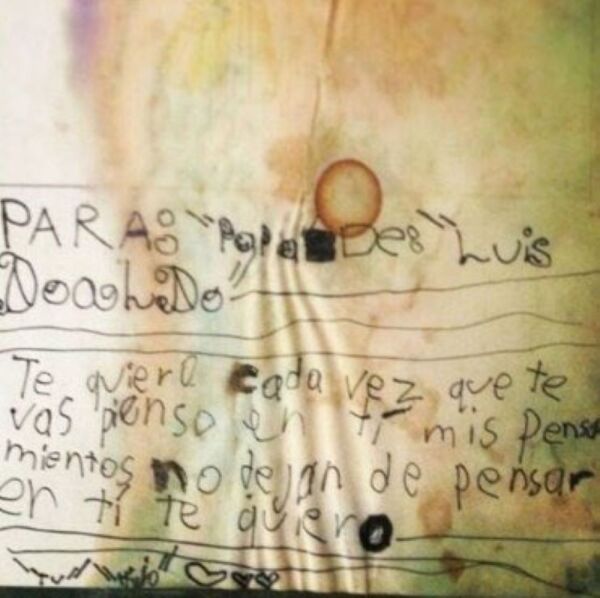 PARA: "Papa Des" Luis
DoaLiDo"
Te quiero cada vez que te
vas pienso en tí mis pensa
mientos no dejan de pensar
en tí te quiero
"Tu" "Hijo"